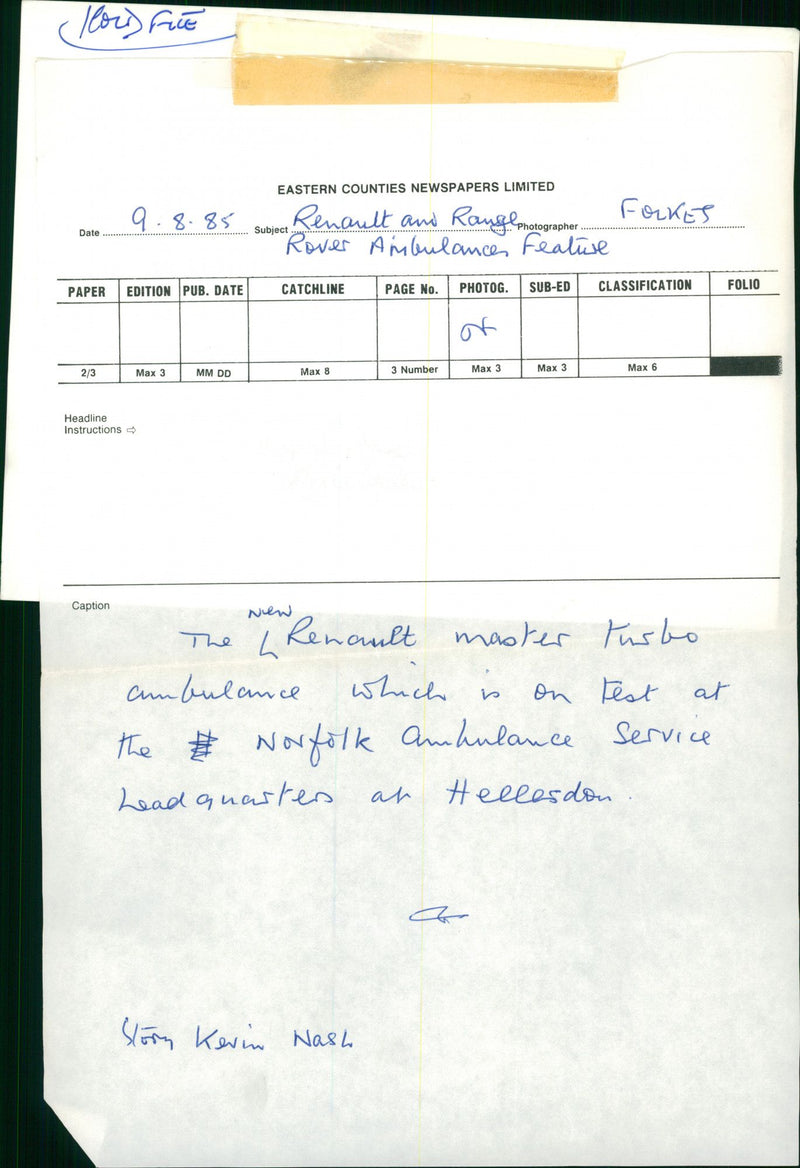 (HOLD) FILE
EASTERN COUNTIES NEWSPAPERS LIMITED
Date 9.8.85 Subject Renault and Range Photographer FOLKES
Rover Ambulances Feature
PAPER EDITION PUB. DATE CATCHLINE PAGE No. PHOTOG. SUB-ED CLASSIFICATION FOLIO
2/3 Max 3 MM DD Max 8 3 Number Max 3 Max 3 Max 6
Headline
Instructions ⇨
Caption
new
The Renault master turbo
ambulance which is on test at
the Norfolk Ambulance Service
headquarters at Hellesdon.
Story Kevin Nash